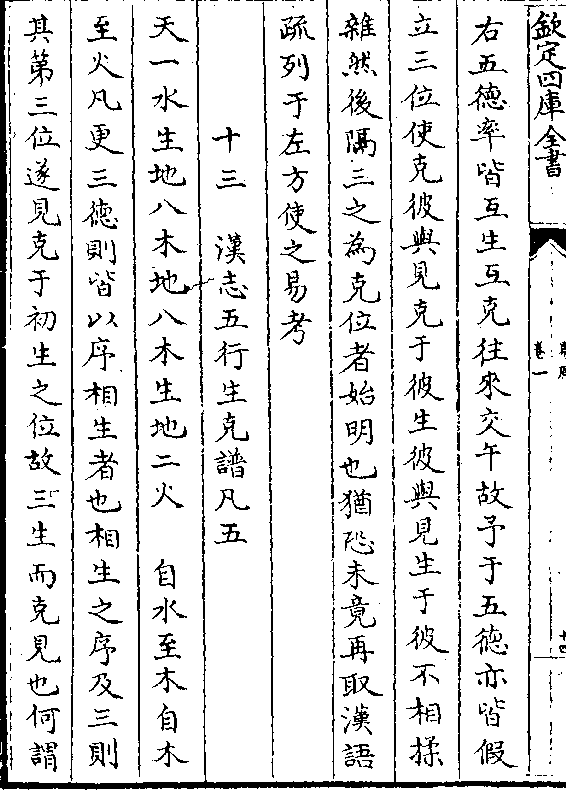 欽定四庫全書
卷一
右五德率皆互生互克往來交午故予于五德亦皆假
立三位使克彼與見克于彼生彼與見生于彼不相揉
雜然後隔三之為克位者始明也猶恐未竟再取漢語
疏列于左方使之易考
十三 漢志五行生克譜凡五
天一水生地八木地八木生地二火 自水至木自木
至火凡更三德則皆以序相生者也相生之序及三則
其第三位遂見克于初生之位故三生而克見也何謂